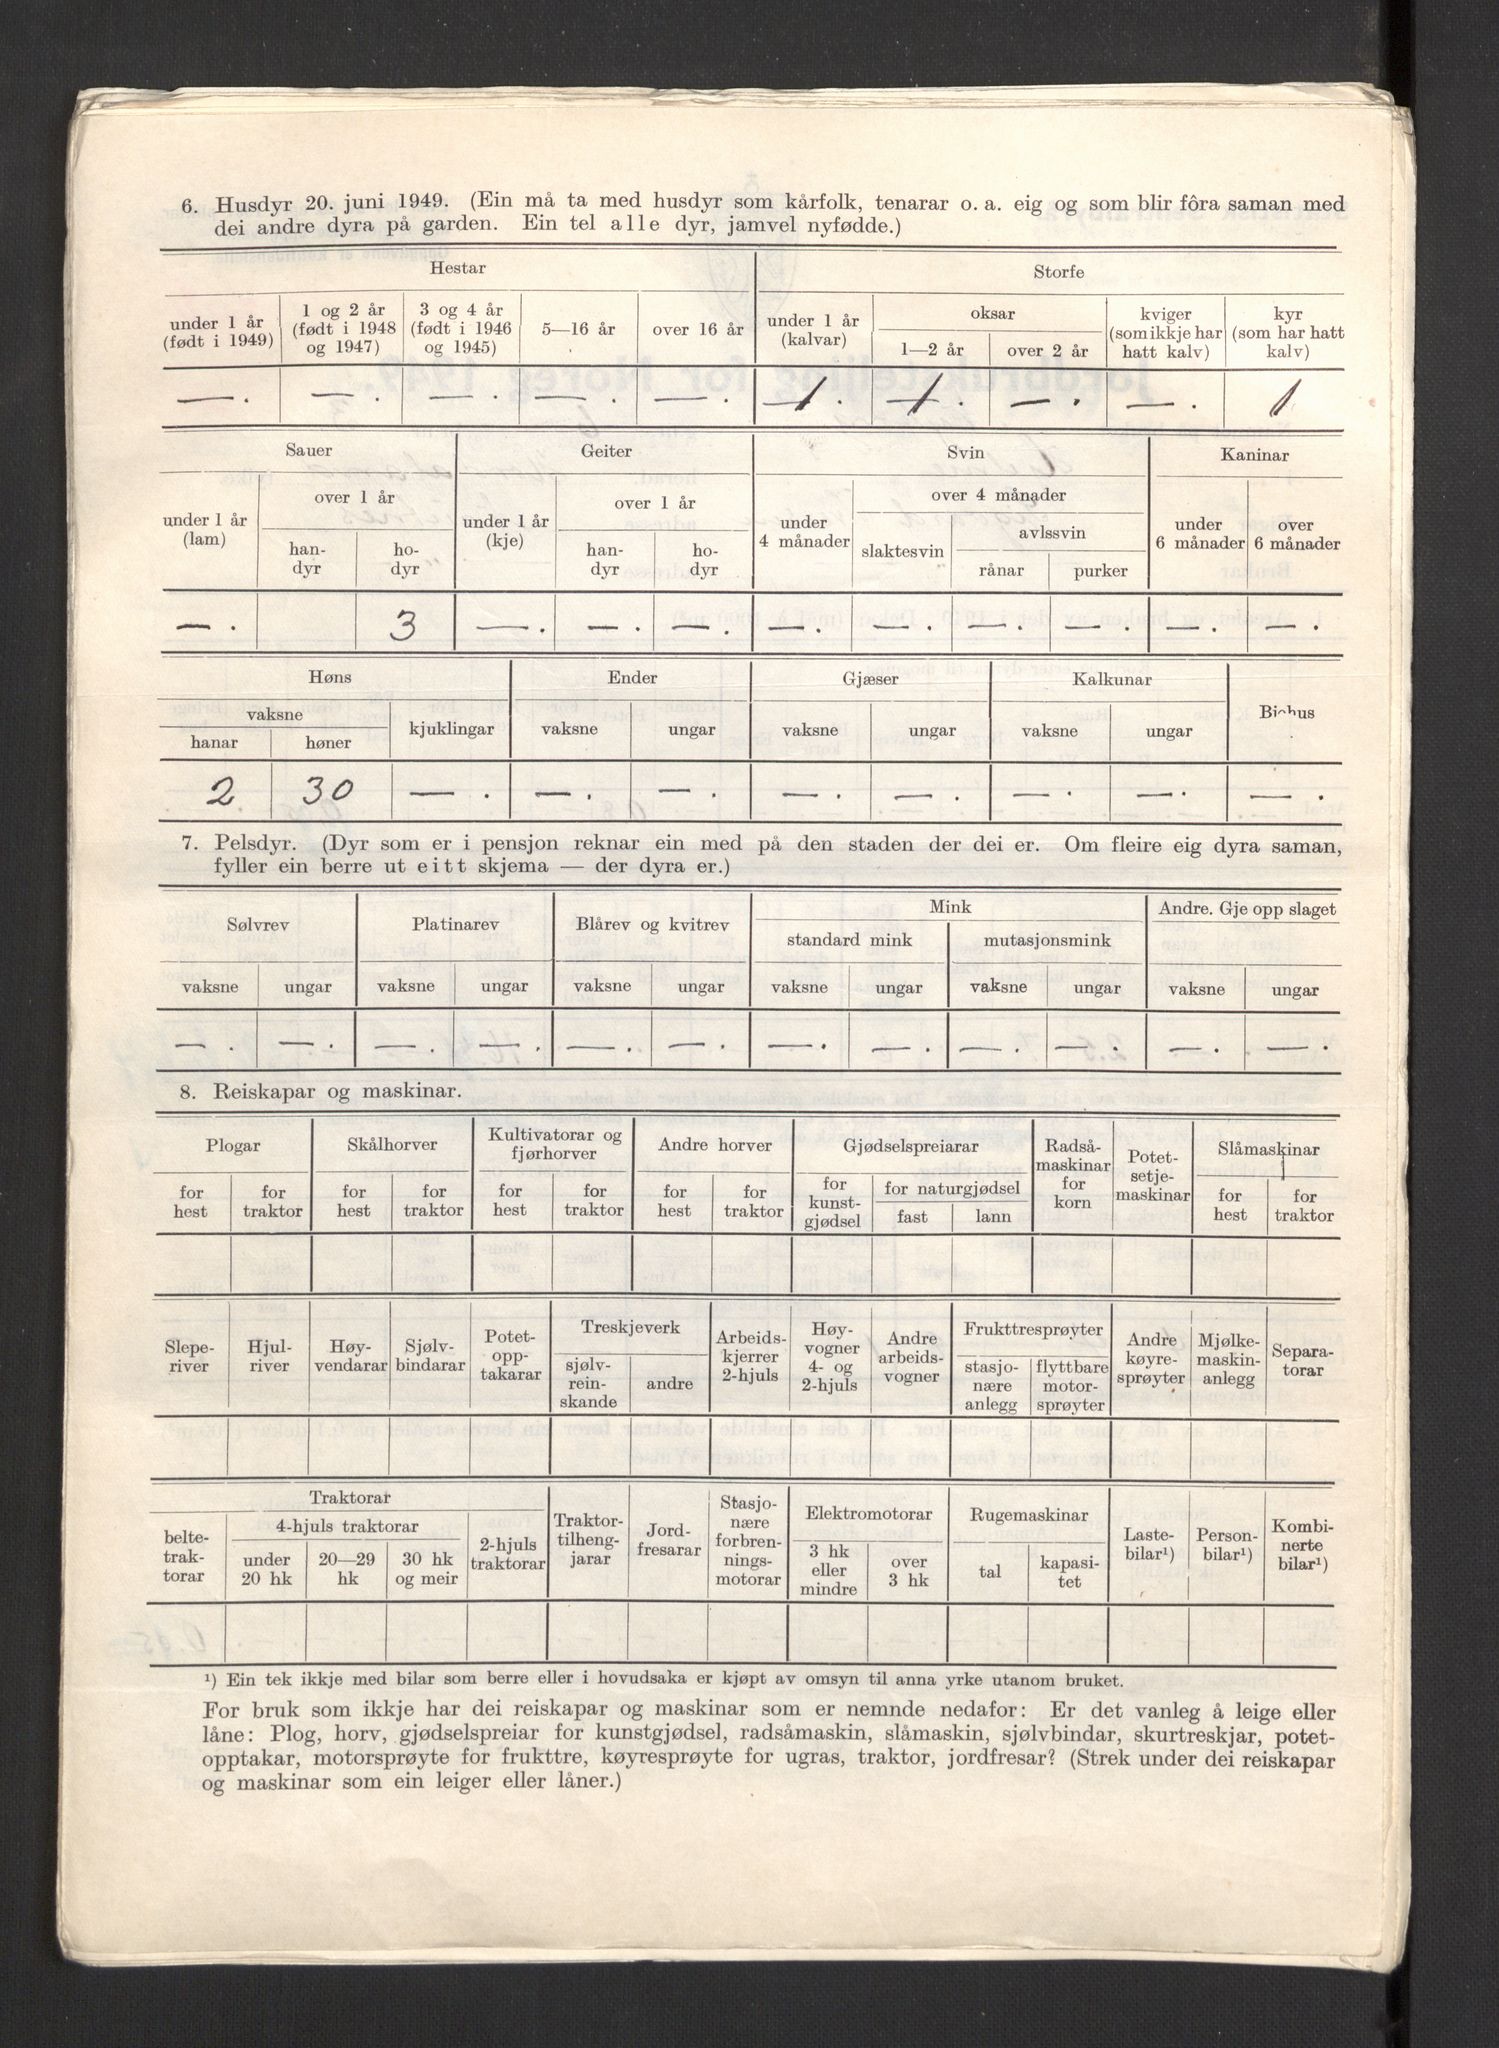 6. Husdyr 20. juni 1949. (Ein må ta med husdyr som kårfolk, tenarar o. a. eig og som blir fôra saman med
dei andre dyra på garden. Ein tel alle dyr, jamvel nyfødde.)
Hestar Storfe
under 1 år (født i 1949) 1 og 2 år (født i 1948 og 1947) 3 og 4 år (født i 1946 og 1945) 5—16 år over 16 år under 1 år (kalvar) oksar 1—2 år over 2 år kviger (som ikkje har hatt kalv) kyr (som har hatt kalv)
—. —. —. —. —. 1. 1. —. —. 1
Sauer Geiter Svin Kaninar
under 1 år (lam) over 1 år handyr hodyr under 1 år (kje) over 1 år handyr hodyr under 4 månader over 4 månader slaktesvin avlssvin rånar purker under 6 månader over 6 månader
—. 3 —. —. —. —. —. —. —. —. —.
Høns Ender Gjæser Kalkunar Biehus
vaksne hanar høner kjuklingar vaksne ungar vaksne ungar vaksne ungar
2 30 —. —. —. —. —. —. —. —.
7. Pelsdyr. (Dyr som er i pensjon reknar ein med på den staden der dei er. Om fleire eig dyra saman,
fyller ein berre ut eitt skjema — der dyra er.)
Sølvrev Platinarev Blårev og kvitrev Mink Andre. Gje opp slaget
standard mink mutasjonsmink
vaksne ungar vaksne ungar vaksne ungar vaksne ungar vaksne ungar vaksne ungar
—. —. —. —. —. —. —. —. —. —. —. —.
8. Reiskapar og maskinar.
Plogar Skålhorver Kultivatorar og fjørhorver Andre horver Gjødselspreiarar Radsåmaskinar for korn Potetsetjemaskinar Slåmaskinar
for hest for traktor for hest for traktor for hest for traktor for hest for traktor for kunstgjødsel for naturgjødsel fast lann for hest for traktor
Sleperiver Hjulriver Høyvendarar Sjølvbindarar Potetopptakarar Treskjeverk sjølvreinskande andre Arbeidskjerrer 2-hjuls Høyvogner 4- og 2-hjuls Andre arbeidsvogner Frukttresprøyter stasjonære anlegg flyttbare motorsprøyter Andre køyresprøyter Mjølkemaskinanlegg Separatorar
Traktorar beltetraktorar 4-hjuls traktorar under 20 hk 20—29 hk 30 hk og meir 2-hjuls traktorar Traktortilhengjarar Jordfresarar Stasjonære forbrenningsmotorar Elektromotorar 3 hk eller mindre over 3 hk Rugemaskinar tal kapasitet Lastebilar¹) Personbilar¹) Kombinerte bilar¹)
¹) Ein tek ikkje med bilar som berre eller i hovudsaka er kjøpt av omsyn til anna yrke utanom bruket.
For bruk som ikkje har dei reiskapar og maskinar som er nemnde nedafor: Er det vanleg å leige eller
låne: Plog, horv, gjødselspreiar for kunstgjødsel, radsåmaskin, slåmaskin, sjølvbindar, skurtreskjar, potet-
opptakar, motorsprøyte for frukttre, køyresprøyte for ugras, traktor, jordfresar? (Strek under dei reiskapar
og maskinar som ein leiger eller låner.)